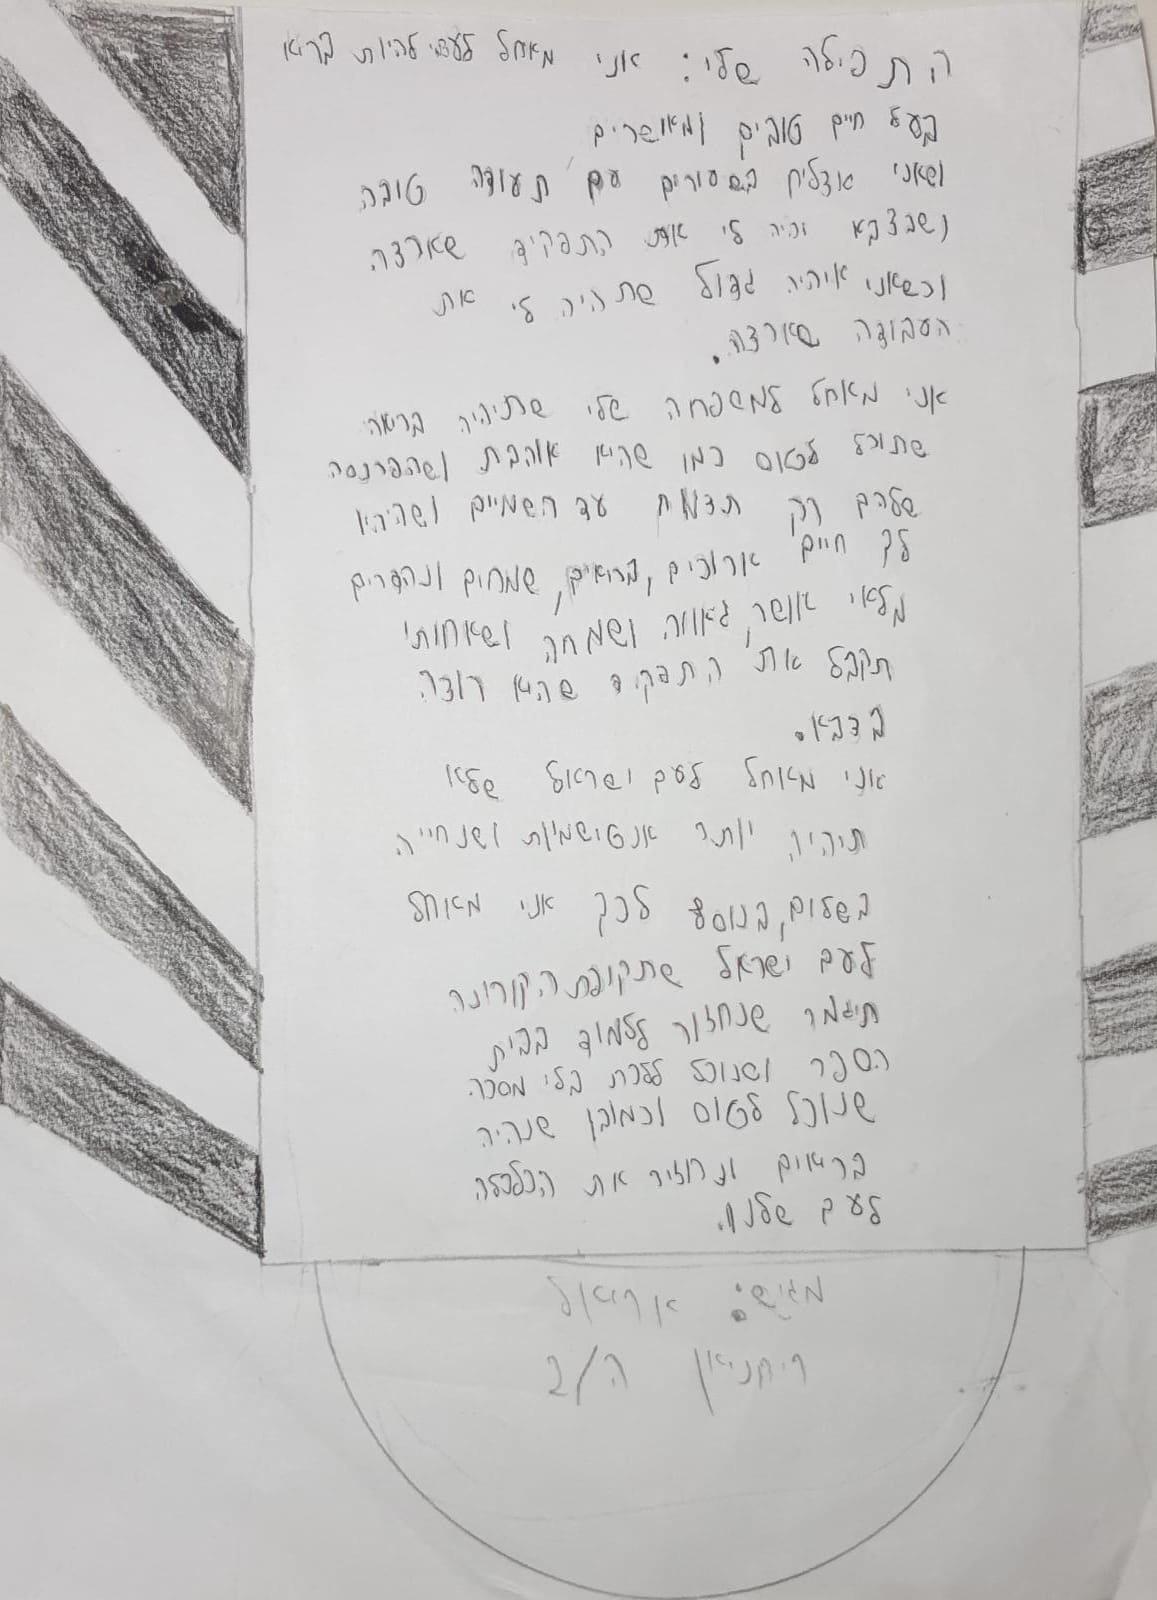 התפילה שלי: אני מאחל לעצמי להיות בריא
בעל חיים טובים ומאושרים
ושאני אצליח בשעורים עם תעודה טובה
ושבצבא יהיה לי את התפקיד שארצה
וכשאני איהיה גדול שתהיה לי את
העבודה שארצה.
אני מאחל למשפחה שלי שתיהיה בריאה
שתוכל לטוס כמו שהיא אוהבת ושהפרנסה
שלהם רק תצמח עד השמיים ושיהיו
לך חיים ארוכים, בריאים, שמחים ונהדרים
מלאי אושר, גאווה ושמחה ושאחותי
תקבל את התפקיד שהיא רוצה
בצבא.
אני מאחל לעם ישראל שלא
תיהיה יותר אנטישמיות ושנחייה
בשלום, בנוסף לכך אני מאחל
לעם ישראל שתקופת הקורונה
תיגמר שנחזור ללמוד בבית
הספר ושנוכל ללכת בלי מסכה
שנוכל לטוס וכמובן שנהיה
בריאים ונחזיר את הכלכלה
לעם שלנו.
מגיש: אריאל
ריחניאן ה/2